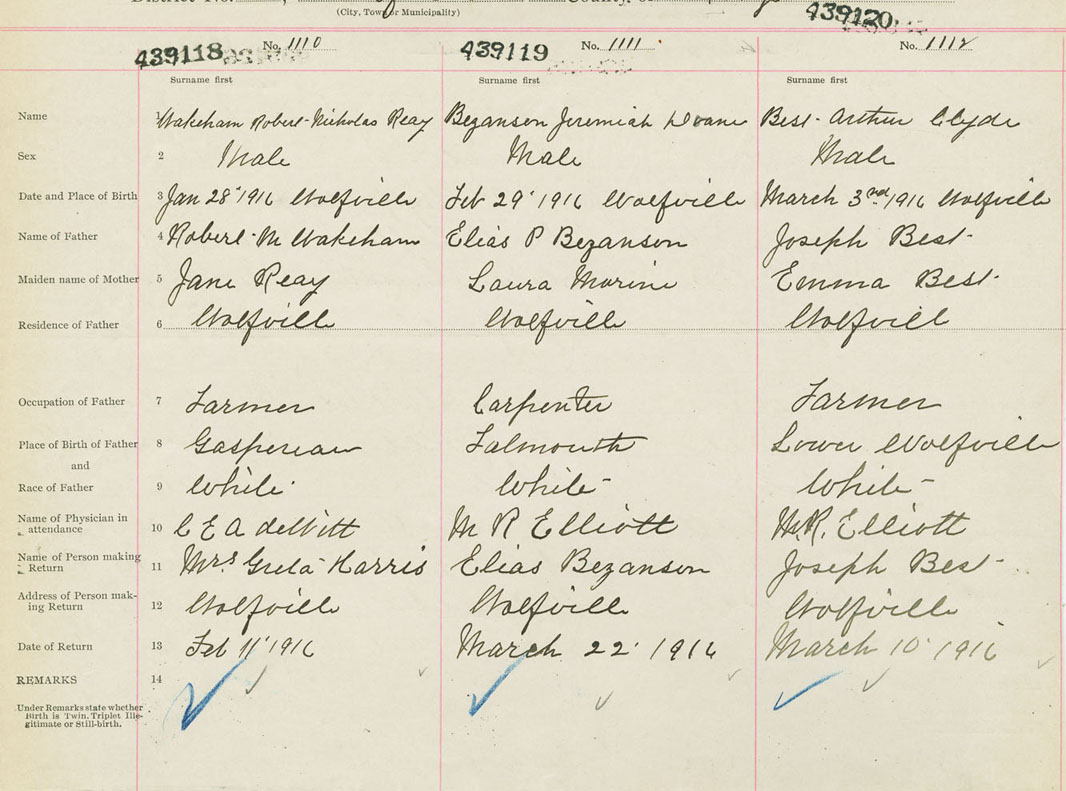 District No. County, of
(City, Town or Municipality)
439118 No. 1110 439119 No. 1111 439120 No. 1112
Surname first Surname first Surname first
Name 1 Wakeham Robert Nicholas Reay Bezanson Jeremiah Doane Best Arthur Clyde
Sex 2 Male Male Male
Date and Place of Birth 3 Jan 28 1916 Wolfville Feb 29 1916 Wolfville March 3rd 1916 Wolfville
Name of Father 4 Robert M Wakeham Elias P Bezanson Joseph Best
Maiden name of Mother 5 Jane Reay Laura Marine Emma Best
Residence of Father 6 Wolfville Wolfville Wolfvill
Occupation of Father 7 Farmer Carpenter Farmer
Place of Birth of Father 8 Gaspereau Falmouth Lower Wolfville
and
Race of Father 9 White White White
Name of Physician in
attendance 10 C E A deWitt M R Elliott M.R. Elliott
Name of Person making
Return 11 Mrs Greta Harris Elias Bezanson Joseph Best
Address of Person mak-
ing Return 12 Wolfville Wolfville Wolfville
Date of Return 13 Feb 11 1916 March 22 1916 March 10 1916
REMARKS 14
Under Remarks state whether
Birth is Twin. Triplet Ille-
gitimate or Still-birth.